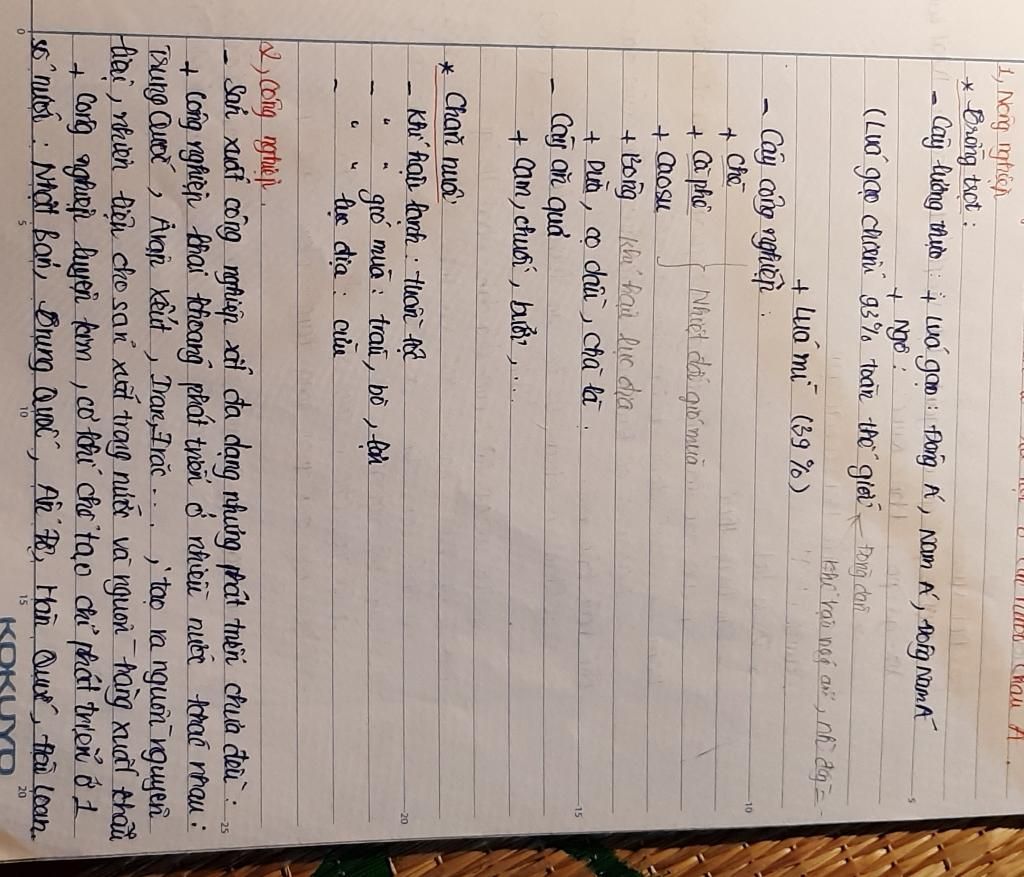 Châu Á.
1, Nông nghiệp
* Trồng trọt:
- Cây lương thực: + Lúa gạo: Đông Á, Nam Á, Đông Nam Á
+ Ngô:
(Lúa gạo chiếm 93% toàn thế giới ← Đông dân
+ Lúa mì (39%)
- Cây công nghiệp:
+ chè
+ cà phê } Nhiệt đới gió mùa
+ cao su
+ Bông khí hậu lục địa
+ Dừa, cọ dầu, chà là.
- Cây ăn quả
+ cam, chuối, bưởi, ...
* Chăn nuôi:
- Khí hậu lạnh: tuần lộc
- " " gió mùa: trâu, bò, lợn
- " " lục địa: cừu
2, Công nghiệp.
- Sản xuất công nghiệp rất đa dạng nhưng phát triển chưa đều.
+ Công nghiệp khai khoáng phát triển ở nhiều nước khác nhau:
Trung Quốc, Ả rập xê út, Iran, I rắc..., tạo ra nguồn nguyên
liệu, nhiên liệu cho sản xuất trong nước và nguồn hàng xuất khẩu
+ Công nghiệp luyện kim, cơ khí chế tạo chỉ phát triển ở 1
số nước: Nhật Bản, Trung Quốc, Ấn Độ, Hàn Quốc, Đài Loan.
0 5 10 15 20
5
10
15
20
25
KOKUYO